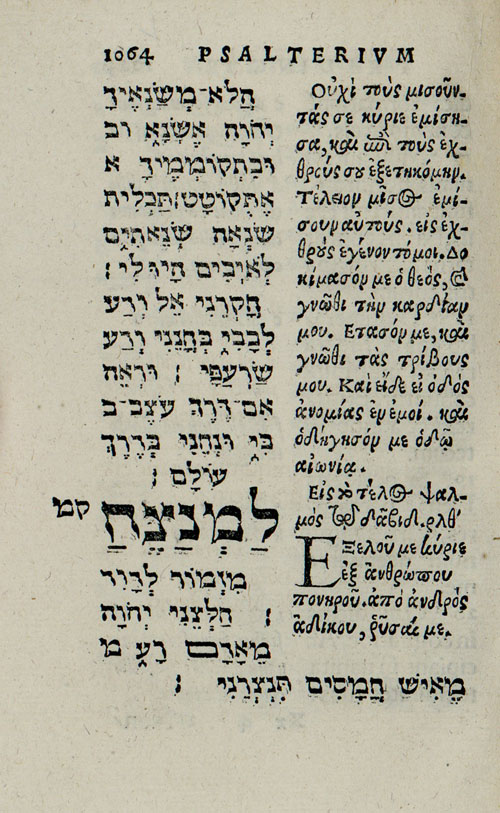 1064 PSALTERIVM
הֲלֹא־מְשַׂנְאֶיךָ
יְהֹוָה אֶשְׂנָא וּב
וּבִתְקוֹמְמֶיךָ א
אֶתְקוֹטָט׃ תַּכְלִית
שִׂנְאָה שְׂנֵאתִים
לְאֹיְבִים הָיוּ לִי׃
חָקְרֵנִי אֵל וְדַע
לְבָבִי בְּחָנֵנִי וְדַע
שַׂרְעַפָּי׃ וּרְאֵה
אִם־דֶּרֶךְ עֹצֶב־ב
בִּי וּנְחֵנִי בְּדֶרֶךְ
עוֹלָם׃
קמ לַמְנַצֵּחַ
מִזְמוֹר לְדָוִד
׃ חַלְּצֵנִי יְהֹוָה
מֵאָדָם רָע מ
מֵאִישׁ חֲמָסִים תִּנְצְרֵנִי׃
Οὐχὶ τοὺς μισοῦν-
τάς σε κύριε ἐμίση-
σα, καὶ ἐπὶ τοὺς ἐχ-
θρούς σου ἐξετηκόμην.
Τέλειον μῖσος ἐμί-
σουν αὐτούς. εἰς ἐχ-
θροὺς ἐγένοντό μοι. Δο
κίμασόν με ὁ θεὸς, καὶ
γνῶθι τὴν καρδίαν
μου. Ἔτασόν με, καὶ
γνῶθι τὰς τρίβους
μου. Καὶ εἶδε εἰ ὁδὸς
ἀνομίας ἐν ἐμοί. καὶ
ὁδήγησόν με ὁδῷ
αἰωνίᾳ.
Εἰς τὸ τέλος ψαλ-
μὸς τῷ δαβίδ. ρλθʹ
Ἐξελοῦ με κύριε
ἐξ ἀνθρώπου
πονηροῦ. ἀπὸ ἀνδρὸς
ἀδίκου, ῥῦσαί με.